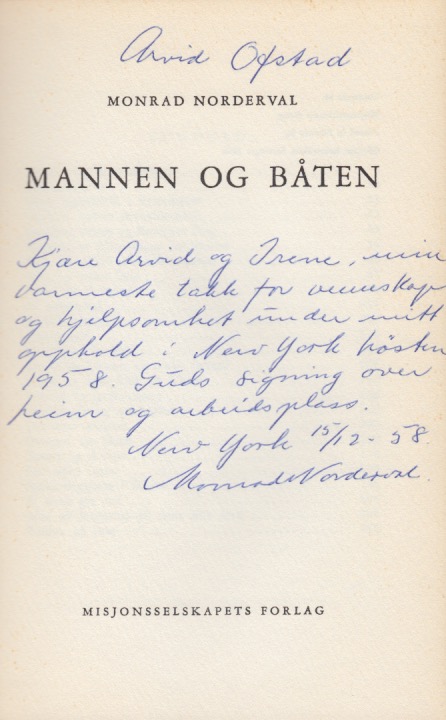 Arvid Ofstad
MONRAD NORDERVAL
MANNEN OG BÅTEN
Kjære Arvid og Irene, min
varmeste takk for vennskap
og hjelpsomhet under mitt
opphold i New York hösten
1958. Guds signing over
heim og arbeidsplass.
New York 15/12-58.
Monrad Norderval.
MISJONSSELSKAPETS FORLAG